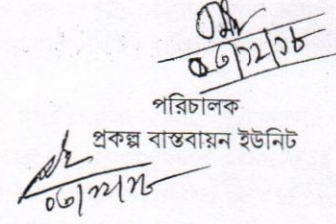 ০৩/১২/১৮
পরিচালক
প্রকল্প বাস্তবায়ন ইউনিট
০৩/১২/১৮